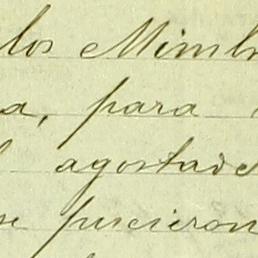 los Mimbr
a, para
agostade
se pucieron